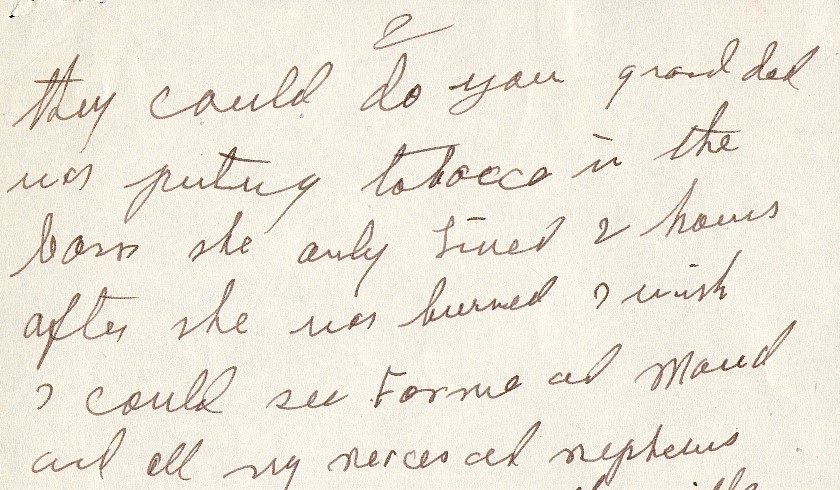 2
they could do your grand dad
was puting tobacco in the
barn she only lived 2 hours
after she was burned I wish
I could see and Maud
and all my neices and nephews